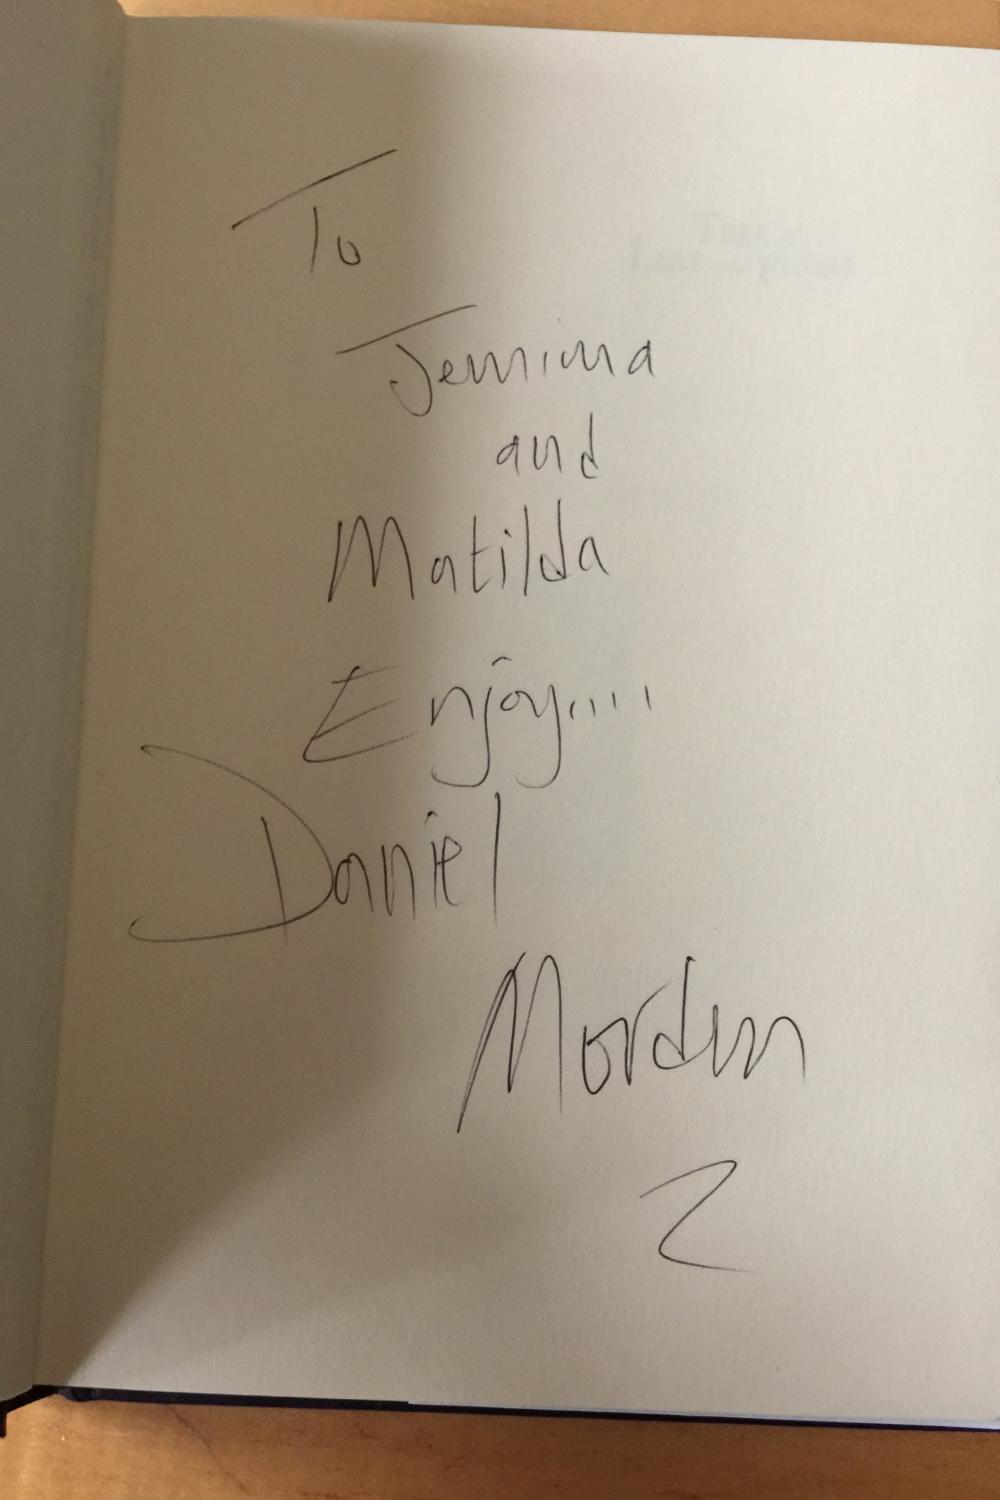 To
Jemima
and
Matilda
Enjoy....
Daniel
Morden